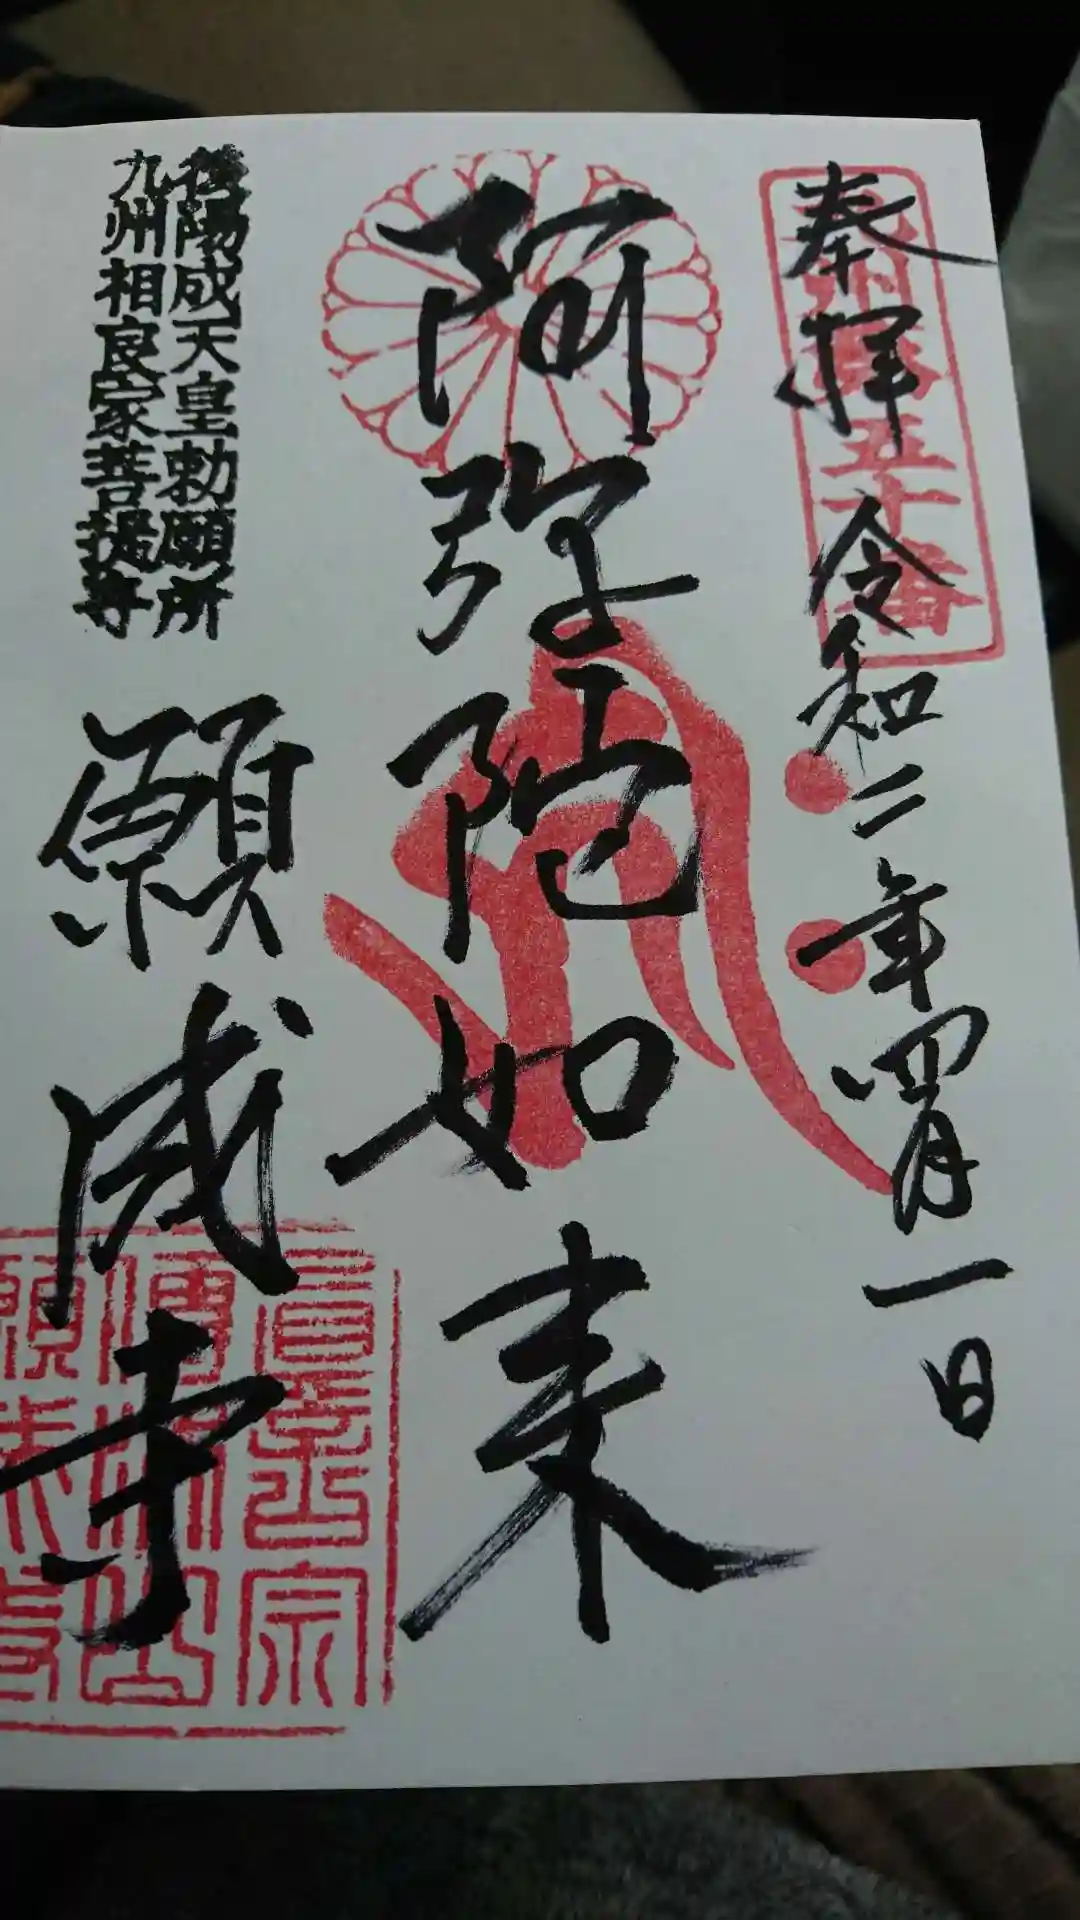 奉拝 令和二年四月一日
阿弥陀如来
後陽成天皇勅願所
九州相良家菩提寺
願成寺
真言宗